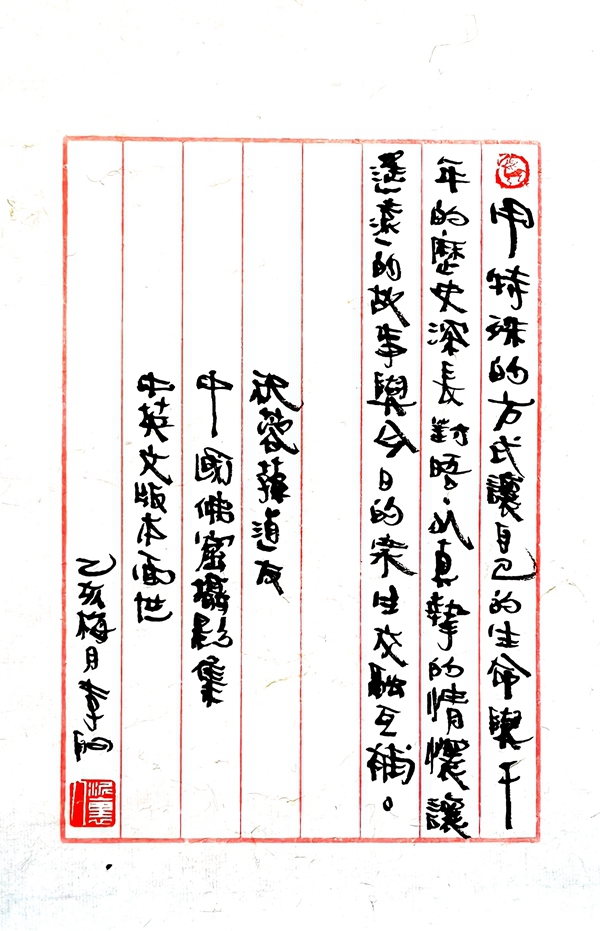 用特殊的方式讓自己的生命與千
年的歷史深長對晤，以真摯的情懷讓
遥遠的故事與今日的衆生交融互補。
祝蓉蓀道友
中國佛窟攝影集
中英文版本面世
乙亥梅月李